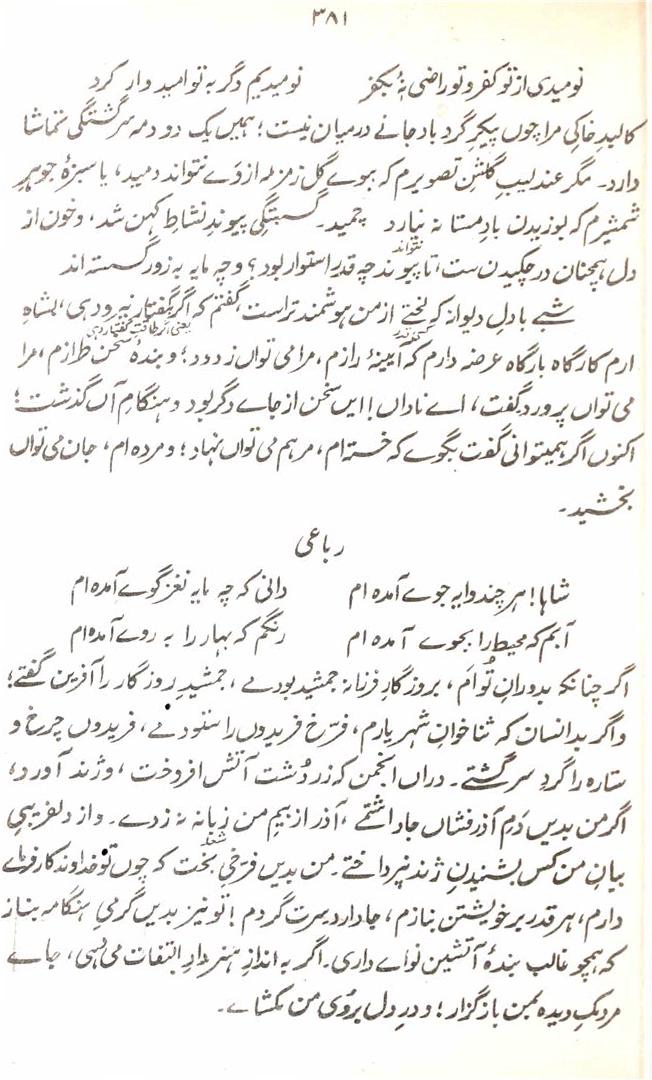 ۳۸۱
نومیدی از تو کفر و تو راضی نۂ بکفر نومیدیم دگر بہ تو امیدوار کرد
کالبدِ خاکی مرا چوں پیکرِ گردباد جانے درمیان نیست؛ ہمیں یک دو دمہ سرگشتگی تماشا
دارد۔ مگر عندلیبِ گلشنِ تصویرم کہ ببوے گل زمزمہ از وَے نتواند دمید، یا سبزۂ جوہرِ
شمشیرم کہ بوزیدن بادِ مستانہ نیارد چمید۔ گسستگی پیوندِ نشاطِ کہن شد، و خون از
دل ہمچناں در چکیدن ست، تا پیوند چہ قدر استوار بود؟ و چہ مایہ بہ زور گسستہ اند
نتواند
شبے با دلِ دیوانہ کہ لختے از من ہوشمند تر است، گفتم کہ اگر گفتارِ نیرو دہی، بشاہِ
یعنی اگر طاقتِ گفتار دہی
ارم کارگاہ بارگاہ عرضہ دارم کہ آیینۂ رازم، مرا می تواں زدود؛ و بندۂ سخن طرازم، مرا
می تواں پرورد گفت، اے ناداں! ایں سخن از جاے دگر بود و ہنگامِ آں گذشت؛
اکنوں اگر ہمیتوانی گفت بگوے کہ خستہ ام، مرہم می تواں نہاد؛ و مردہ ام، جان می تواں
بخشید۔
رباعی
شاہا! ہر چند وایہ جوے آمدہ ام دانی کہ چہ مایہ نغز گوے آمدہ ام
آبم کہ محیط را بجوے آمدہ ام رنگم کہ بہار را بہ روے آمدہ ام
اگر چنانکہ بدورانِ تُو اَم، بروزگارِ فرزانہ جمشید بودمے، جمشیدِ روزگار را آفریں گفتے؛
و اگر بدانسان کہ ثنا خوانِ شہریارم، فرّخ فریدوں را ستودمے، فریدوں چرخ و
ستارہ را گردِ سر گشتے۔ دراں انجمن کہ زردُشت آتش افروخت، و ژند آورد،
اگر من بدیں دَمِ آذر فشاں جا داشتمے، آذر از بیمِ من زبانہ نہ زدے۔ و از دلفریبیِ
بیانِ من کس بشنیدنِ ژند نپرداختے۔ من بدیں فرّخیِ بخت کہ چوں تو خداوند کار فرماے
شغل
دارم، ہر قدر بر خویشتن بنازم، جا دارد سرت گردم! تو نیز بدیں گرمیِ ہنگامہ بناز
کہ ہمچو غالب بندۂ آتشین نواے داری۔ اگر بہ اندازِ ہنر دادِ التفات می دہی، جاے
مردمکِ دیدہ بمن باز گزار؛ و درِ دل بروُی من بکشاے۔